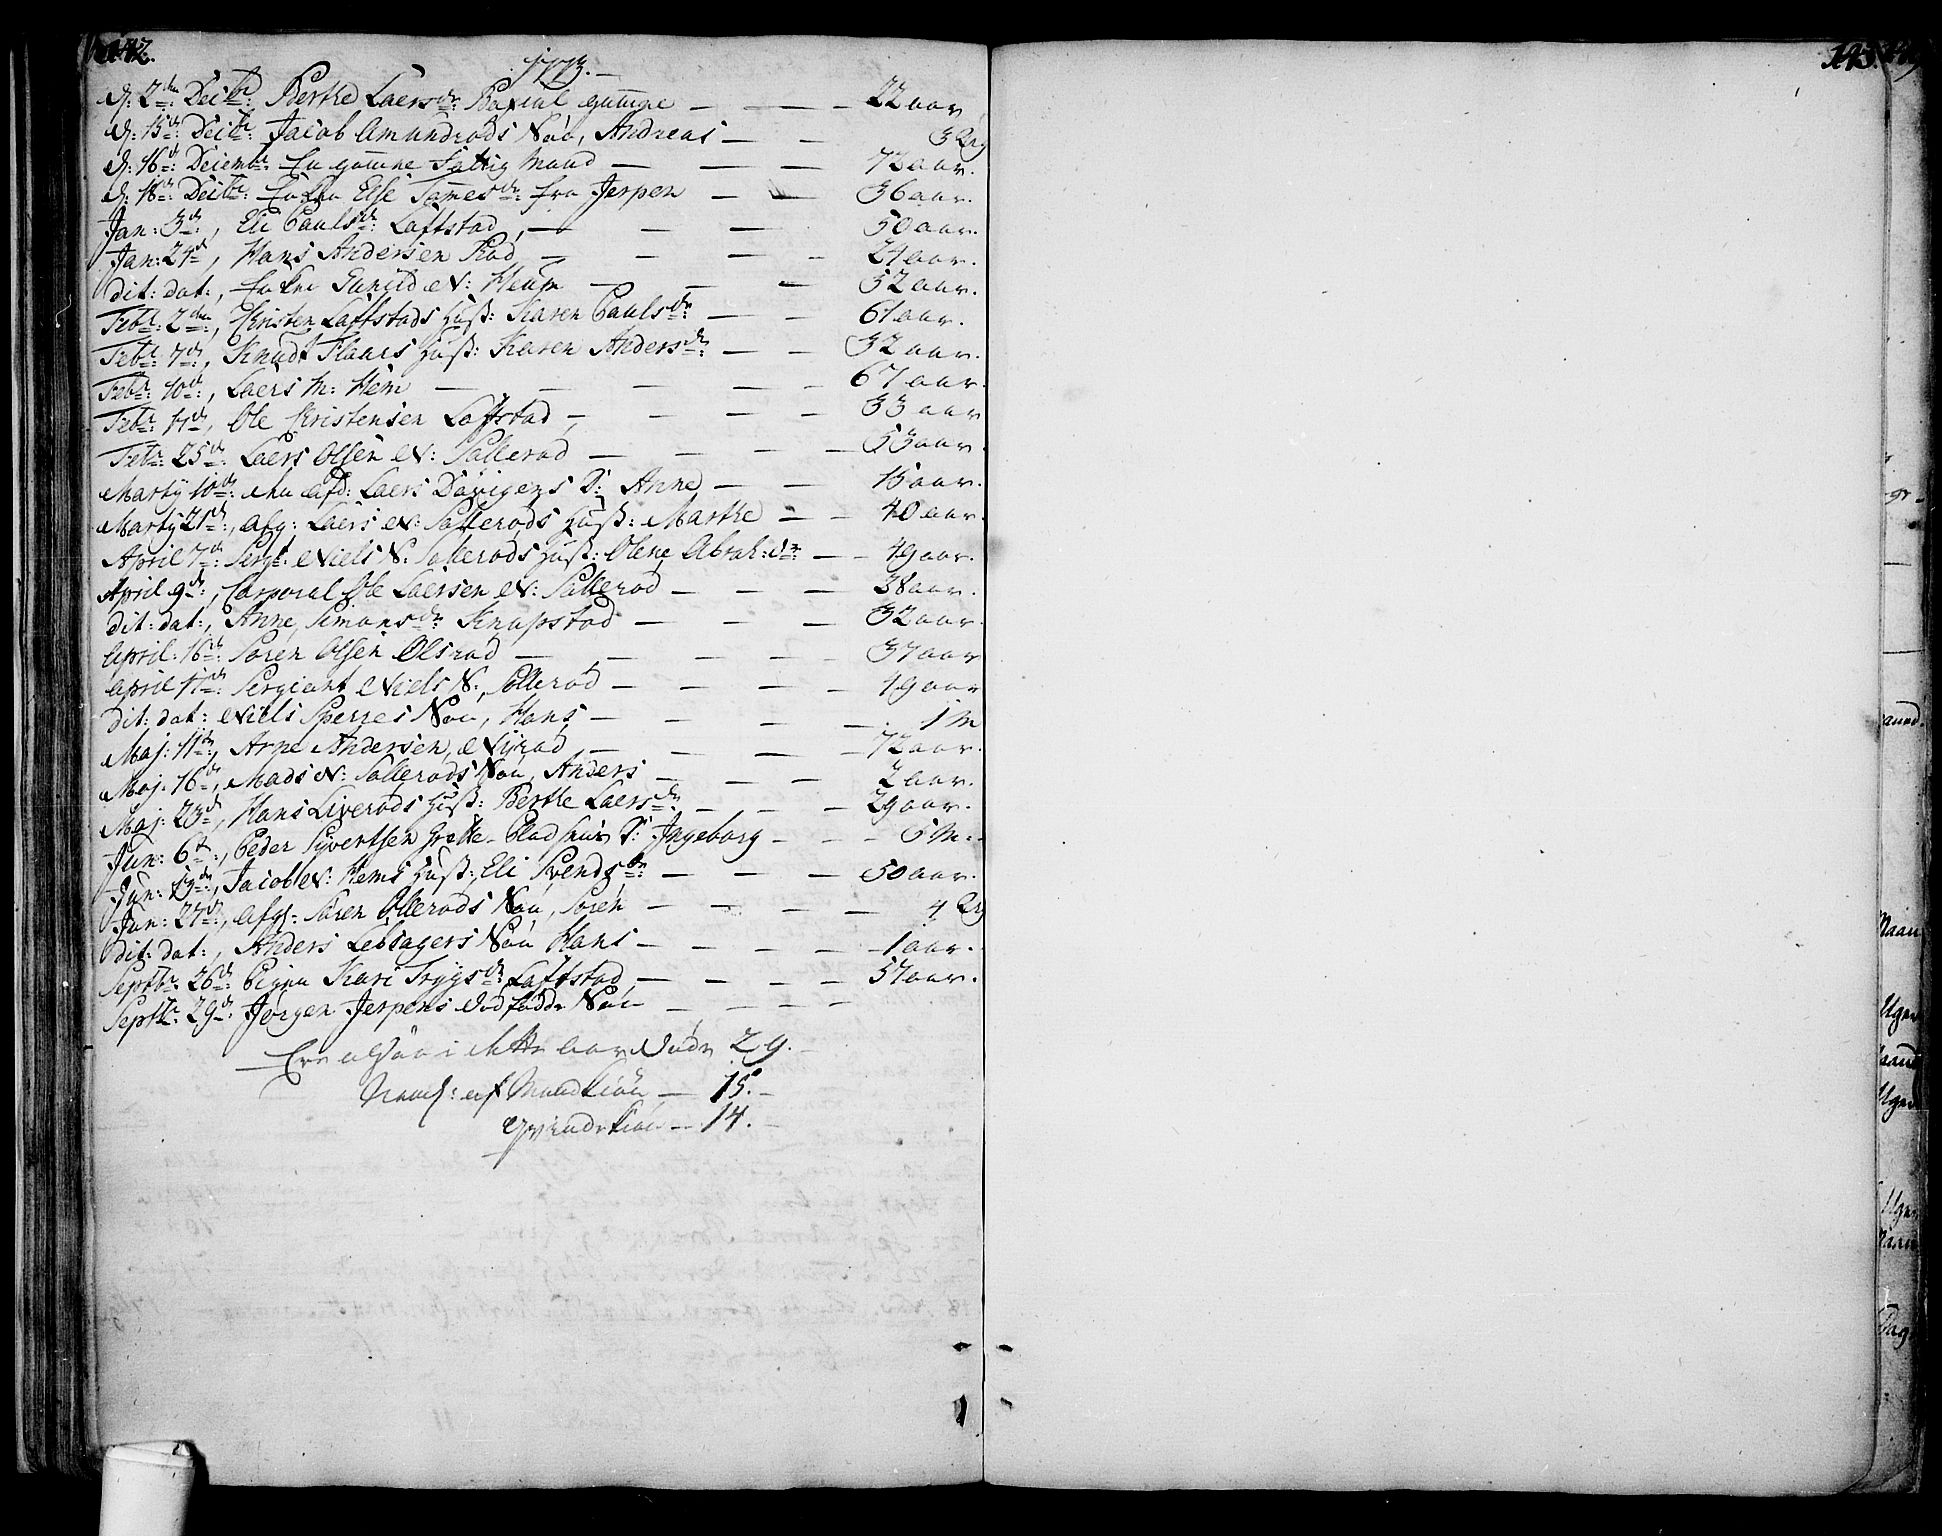 142.
1773.
d: 2den Decbr: Berthe Laersdr: gamme 22 aar
d: 15de Decbr: Jacob Amundrøds Søn, Andreas 3 Ug
d: 16d: Decembr: En gamme Fattig Mand 72 aar.
d: 18de Decbr: Enken Else Tamesdr: fra Jerpen 36 aar.
Jan: 3d:, Eli Paulsdr: Laftstad, 50 aar.
Jan: 24d, Hans Andersen Rød 24 aar.
dit: dat:, Enken Gunild N: Hem 52 aar.
Febr: 2den:, Kristen Laftstads Hust: Karen Paulsdr: 61 aar.
Febr: 7de:, Knudt Flaaes Hust: Karen Andersdr: 32 aar.
Febr: 10de:, Laers M: Hem 67 aar.
Febr: 17d, Ole Kristensen Laftstad, 33 aar
Febr: 25de: Laers Olsen N: Sallerød 53 aar.
Martÿ 10de: Laers D: Anne 15 aar.
Martÿ 21de:, Afg: Laers N: Sallerøds Hust: Marthe 40 aar.
April 7de: Sergt: Niels N: Sallerøds Hust: Olene Abrah:dr: 49 aar.
April 9de:, Corporal Ole Laersen N: Sallerød 38 aar.
dit: dat:, Anne Simonsdr: Knapstad 32 aar.
April: 16de: Søren Olsen Olsrød 37 aar
April 17de: Sergiant Niels N:, Sallerød 49 aar
dit: dat: Niels Sperres Søn, Hans 1 M
Maj: 11de:, Arne Andersen, Nÿrød, 72 aar.
Maj: 16de, Mads N: Sallerøds Søn, Anders 2 aar.
Maj: 23de, Hans Liverøds Hust: Berthe Laersdr: 29 aar.
Jun: 6te:, Peder Syvertsen D: Ingeborg 5 M:
Jun: 19de:, Jacob N: Hems Hust: Eli Svendsdr: 50 aar.
Jun: 27de:, Afg: Søren Ollerøds Søn, Søren 4 Ug
dit: dat:, Anders Søn Hans 1 aar.
Septbr: 26de: Pigen Kari Trygsdr: Laftstad, 57 aar.
Septbr: 29de: Jørgen Jerpens Dødfødde Søn
Ere altsaa i dette Aar Døde 29.
Naml: af Mandkiøn 15.
Qvindekiøn 14.
143.